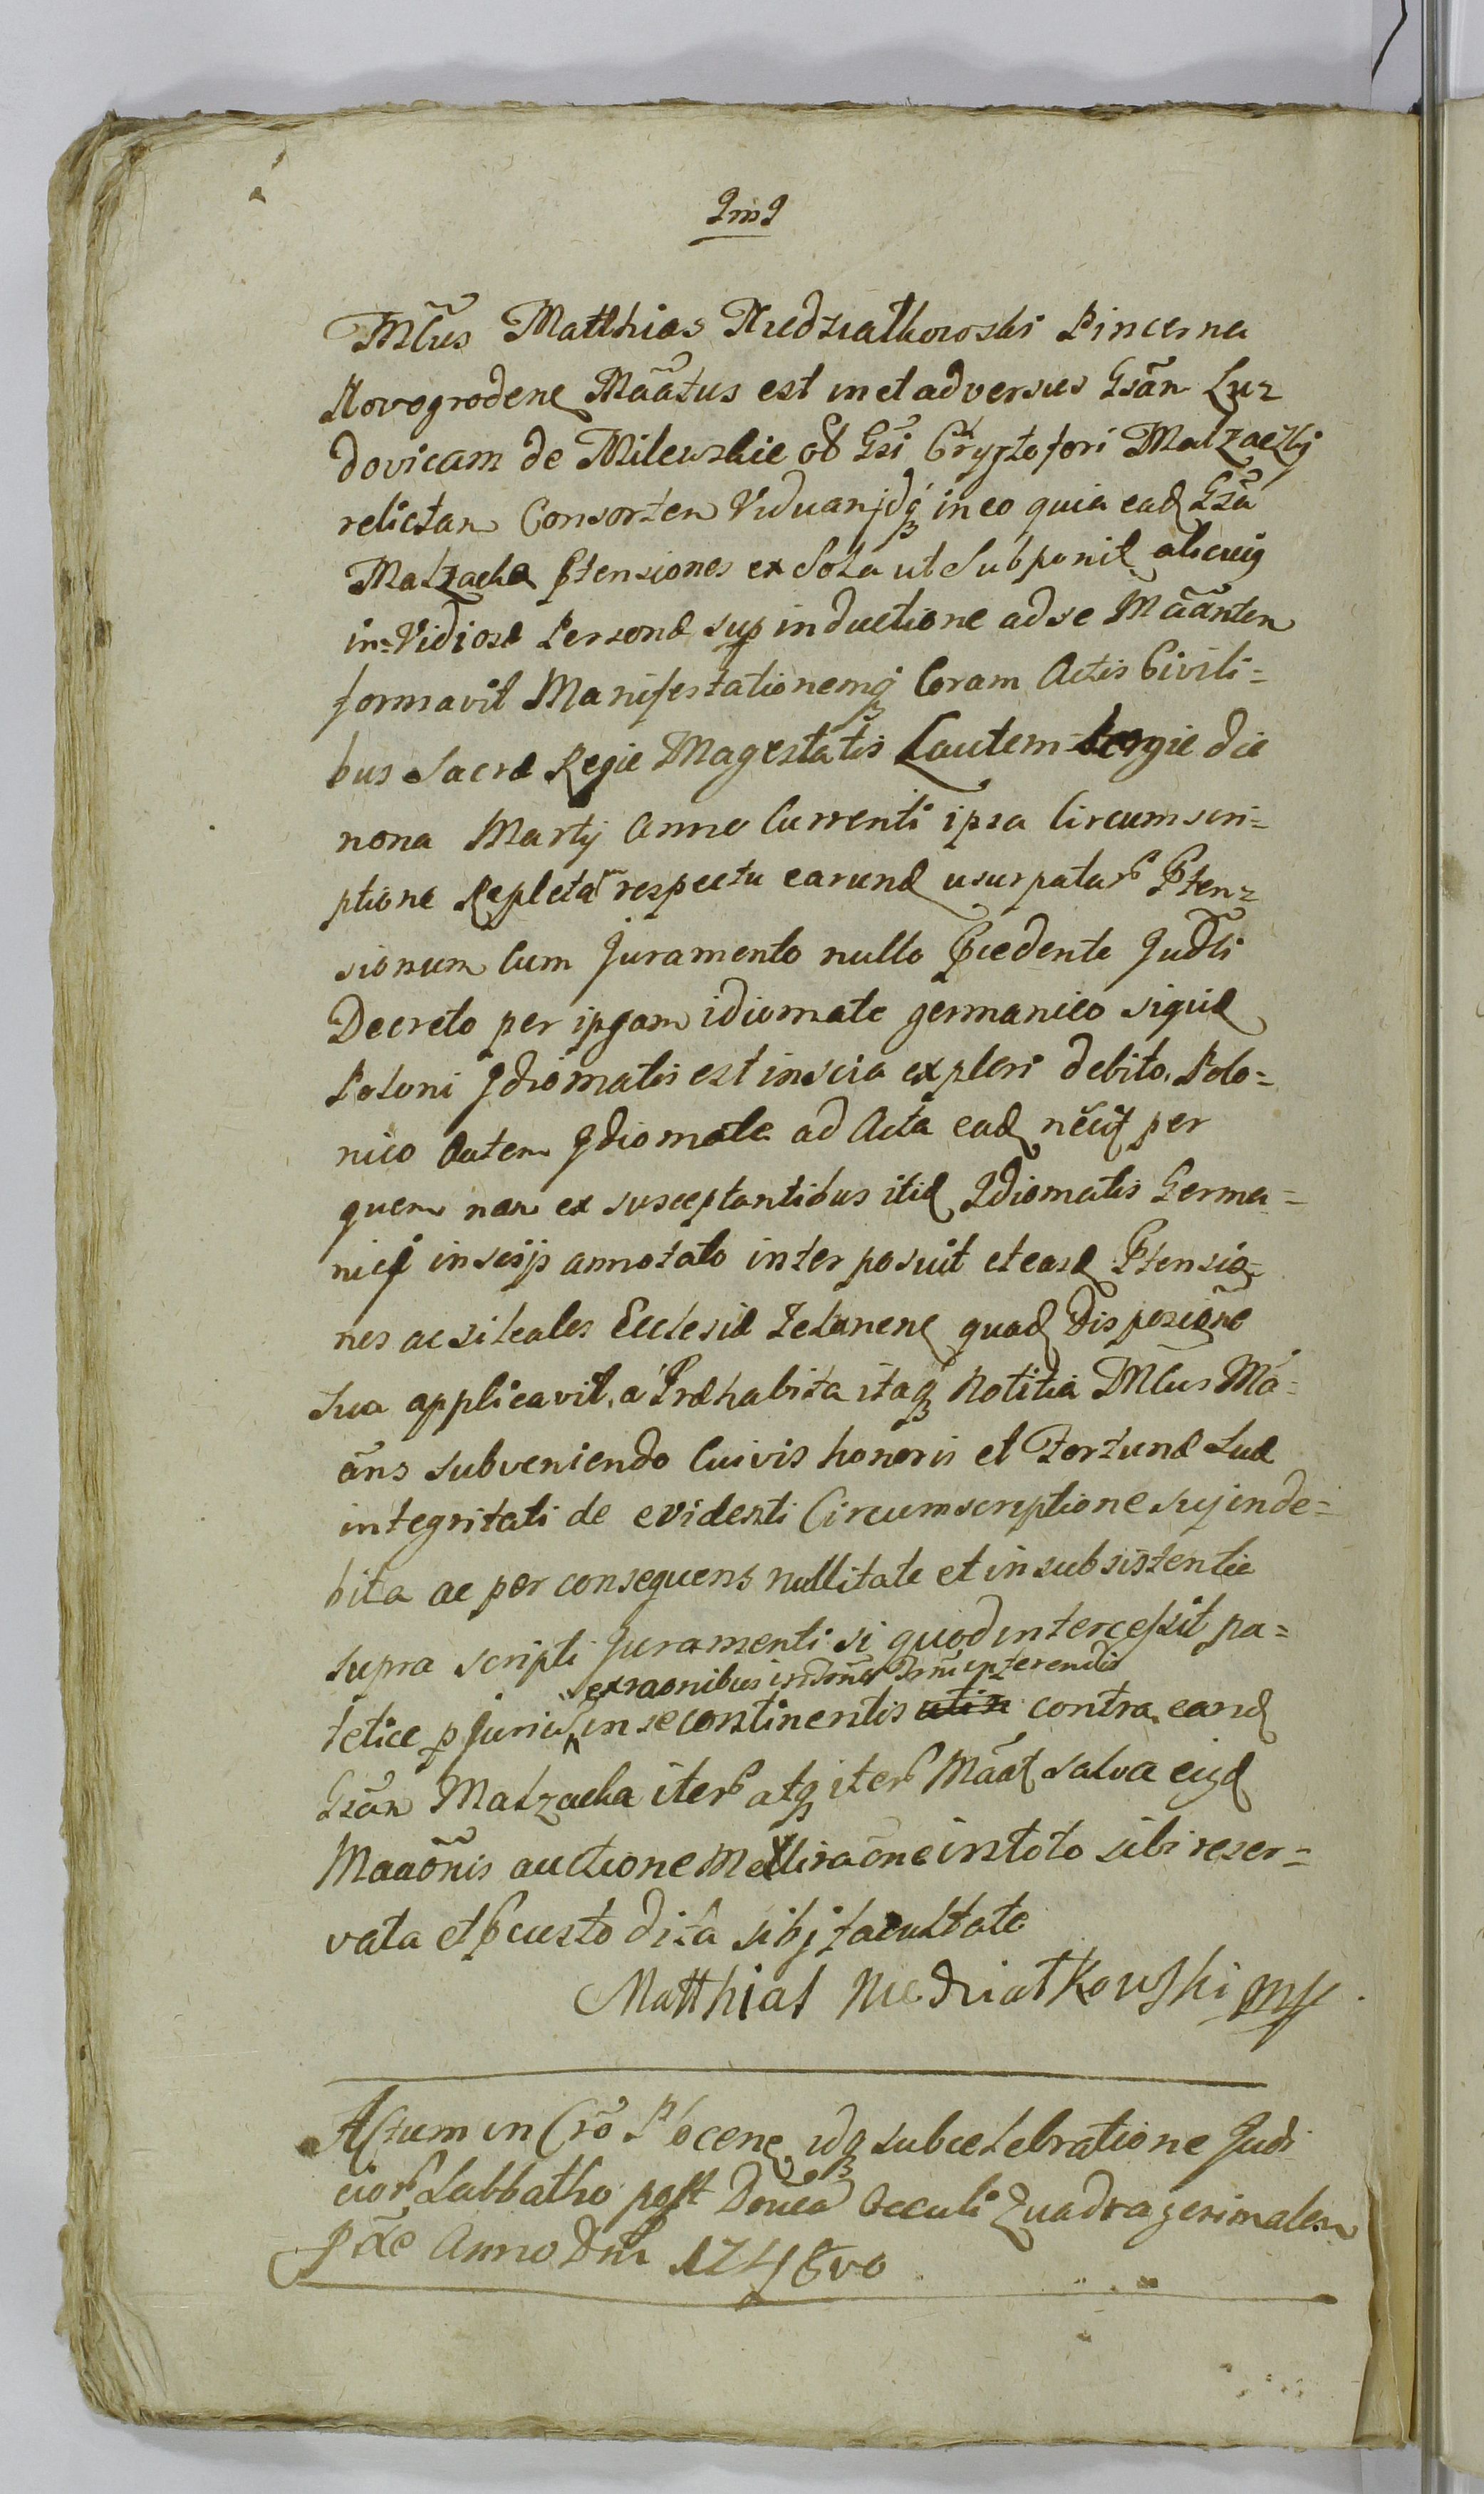 JmJ
Mlus Matthias Niedzialkowski Pincerna
Novogrodene Maatus est in et adversus Gsan Lu=
dovicam de Milewskie ol Gsi Cryztofori Malzaczkj
relictam Consortem Viduam idq in eo quia ead Gsa
Malzacka Ptensiones ex Sola ut Subponit alicuig
in=Vidiosæ Personæ sup inductione ad se Maanten
formavit Manifestationemq Coram Actis Civili=
bus Sacræ Regie Magestatis Lautembergie die
nona Martij Anno Currenti ipsa Circumscri=
ptione Repleta respectu earund usurpatar Pten=
sionum Cum Juramento nullo Pcedente Judli
Decreto per ipsam idiomate germanico siquid
Poloni Jdiomatis est inscia expleri debito, Polo=
nico autem Jdiomate ad Acta ead per
quem non ex susceptantibus itid Idiomatis Germa=
nici inscijs annotato interposuit et easd Ptensio=
nes ac si leales Ecclesiæ quad Disposicione
sua applicavit, a Præhabita itaq Notitia Mlus Ma=
ans subveniendo Cuivis honoris et Fortunæ Suæ
integritati de evidenti Circumscriptione sui inde=
bita ac per consequens nullitate et in subsistentie
supra scripti Juramenti si quod intercessit pa=
ex raonibus in interendis
tetice pjurium in se continentis contra eand
Gsan Malzacka iter atq iter Maat salva eigd
Maaonis auctione Melioraone in toto sibi reser=
vata et pcustodita sibj facultate
Matthias Niedziatkowski mp
Actum in Cro Plocene, idq sub celebratione Judi
cior Sabbatho post Donica Occuli Quadragesimalem
pxe Anno Dni 1748vo